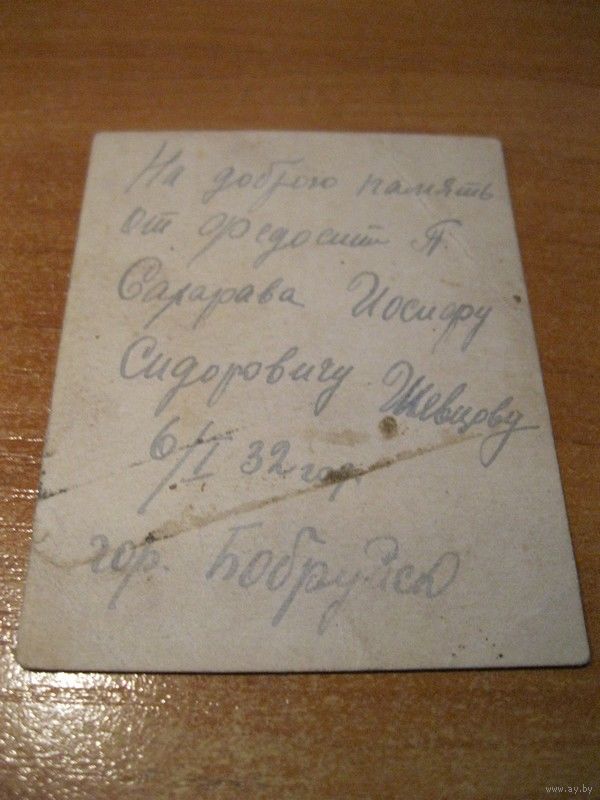 На доброю память
от Федосит П.
Сарарава Иосифу
Сидоровичу Шевцову
6/I 32 гор.
гор. Бобруйск
www.ay.by